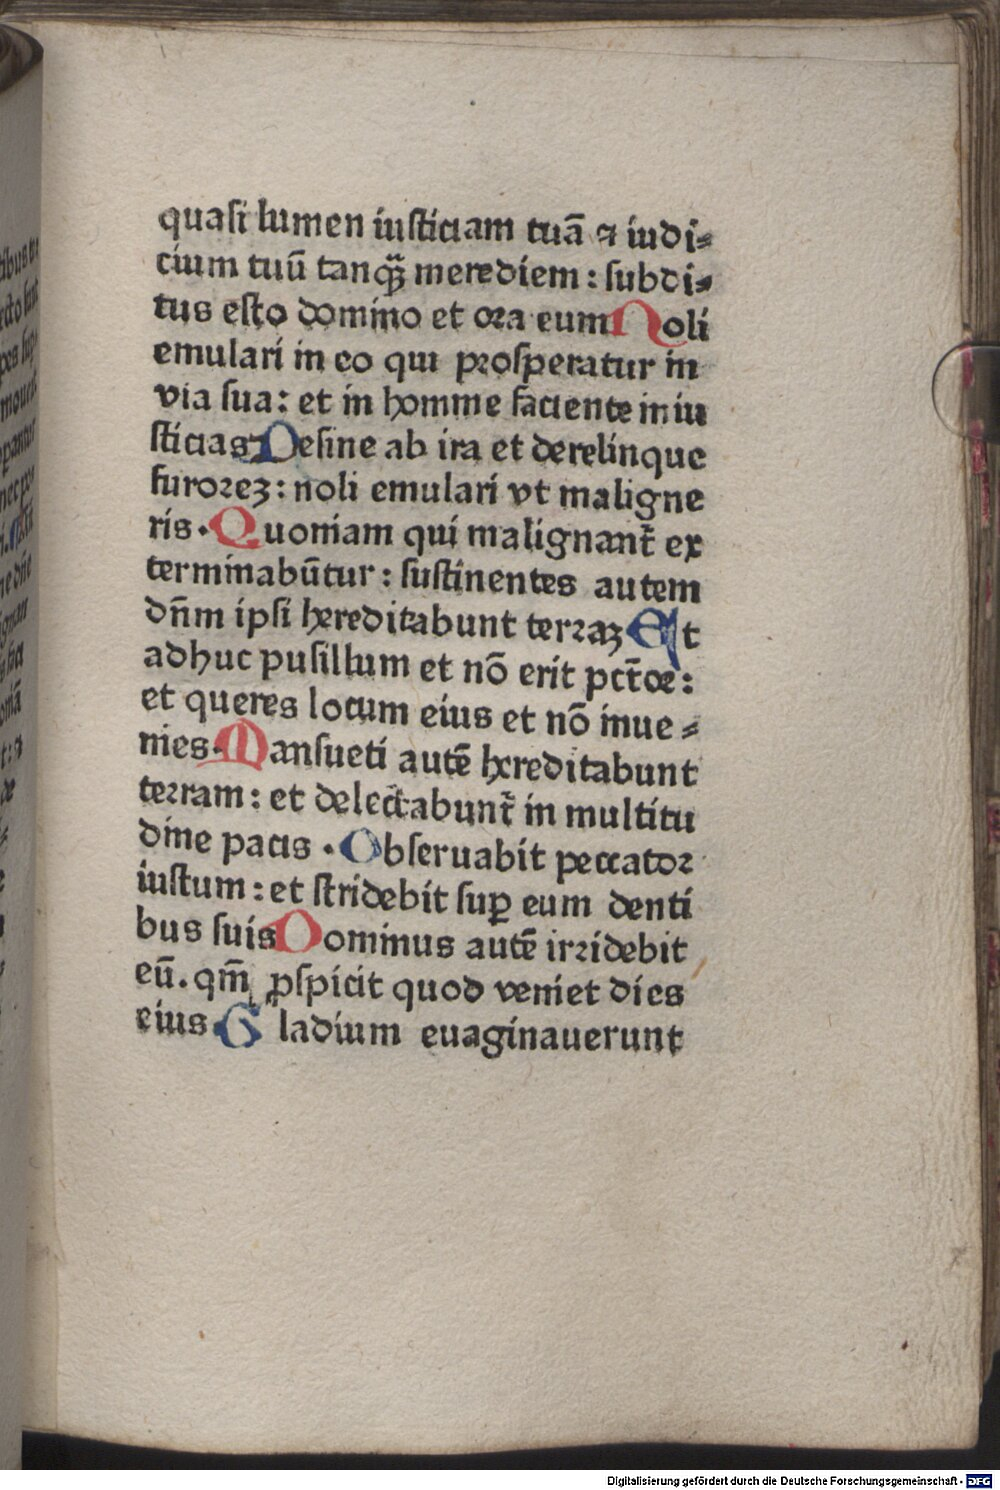 quasi lumen iusticiam tuā ⁊ iudi⸗
cium tuū tanq̄ merediem : subdi⸗
tus esto domino et ora eum Noli
emulari in eo qui prosperatur in
via sua : et in homine faciente in iu
sticias Desine ab ira et derelinque
furorez : noli emulari vt maligne
ris . Quoniam qui malignant᷑ ex
terminabūtur : sustinentes autem
dn̄m ipsi hereditabunt terraz Et
adhuc pusillum et nō erit pct̄oꝛ :
et queres locum eius et nō inue ⸗
nies . Mansueti autē hereditabunt
terram : et delectabunt᷑ in multitu
dine pacis . Obseruabit peccator
iustum : et stridebit suꝑ eum denti
bus suis Dominus autē irridebit
eū . qm̄ ꝓspicit quod veniet dies
eius . Gladium euaginauerunt
Digitalisierung gefördert durch die Deutsche Forschungsgemeinschaft - DFG